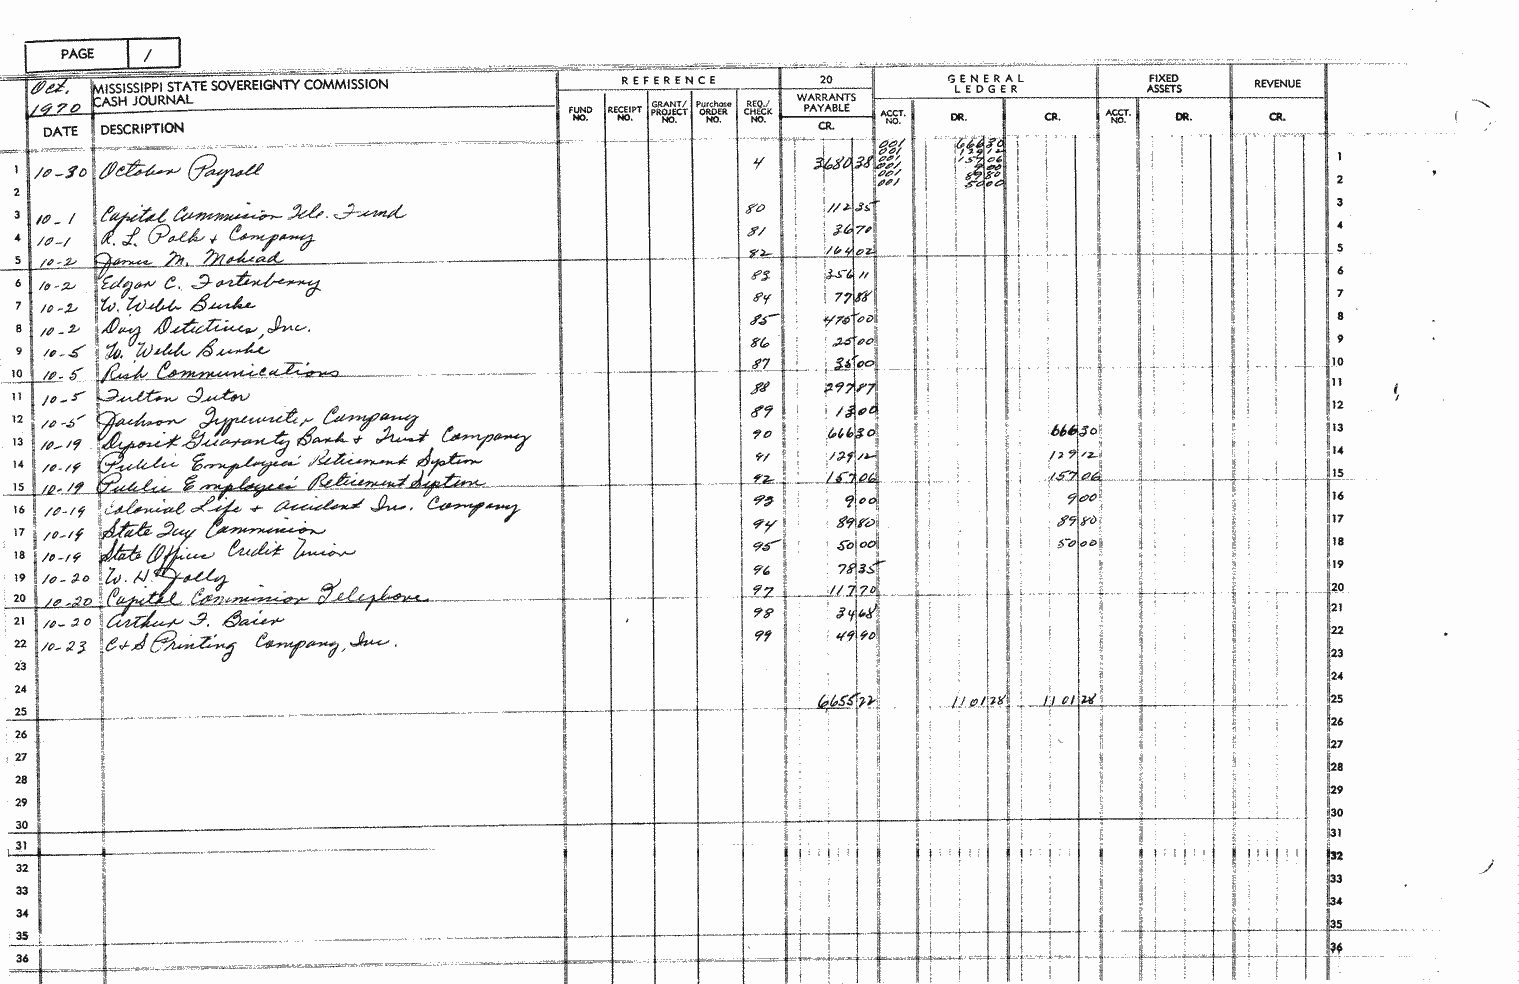 PAGE 1
Oct. 1970 MISSISSIPPI STATE SOVEREIGNTY COMMISSION
CASH JOURNAL
REFERENCE 20 GENERAL LEDGER FIXED ASSETS REVENUE
DATE DESCRIPTION FUND NO. RECEIPT NO. GRANT/PROJECT NO. Purchase ORDER NO. REQ./CHECK NO. WARRANTS PAYABLE CR. ACCT. NO. DR. CR. ACCT. NO. DR. CR.
001 666 30
001 129 12
1 10-30 October Payroll 4 3680 38 001 157 06 1
001 9 00
001 89 80
2 001 50 00 2
3 10-1 Capital Commission Tele. Fund 80 112 35 3
4 10-1 R. L. Polk & Company 81 36 70 4
5 10-2 James M. Mohead 82 164 02 5
6 10-2 Edgar C. Fortenberry 83 356 11 6
7 10-2 W. Webb Burke 84 77 88 7
8 10-2 Day Detectives, Inc. 85 475 00 8
9 10-5 W. Webb Burke 86 25 00 9
10 10-5 Rish Communications 87 35 00 10
11 10-5 Fulton Tutor 88 297 87 11
12 10-5 Jackson Typewriter Company 89 13 00 12
13 10-19 Deposit Guaranty Bank & Trust Company 90 666 30 666 30 13
14 10-19 Public Employees' Retirement System 91 129 12 129 12 14
15 10-19 Public Employees' Retirement System 92 157 06 157 06 15
16 10-19 Colonial Life & Accident Ins. Company 93 9 00 9 00 16
17 10-19 State Tax Commission 94 89 80 89 80 17
18 10-19 State Offices Credit Union 95 50 00 50 00 18
19 10-20 W. H. Jolly 96 78 35 19
20 10-20 Capital Commission Telephone 97 117 70 20
21 10-20 Arthur F. Baier 98 34 68 21
22 10-23 C & S Printing Company, Inc. 99 49 90 22
23 23
24 24
25 6655 22 1101 28 1101 28 25
26 26
27 27
28 28
29 29
30 30
31 31
32 32
33 33
34 34
35 35
36 36